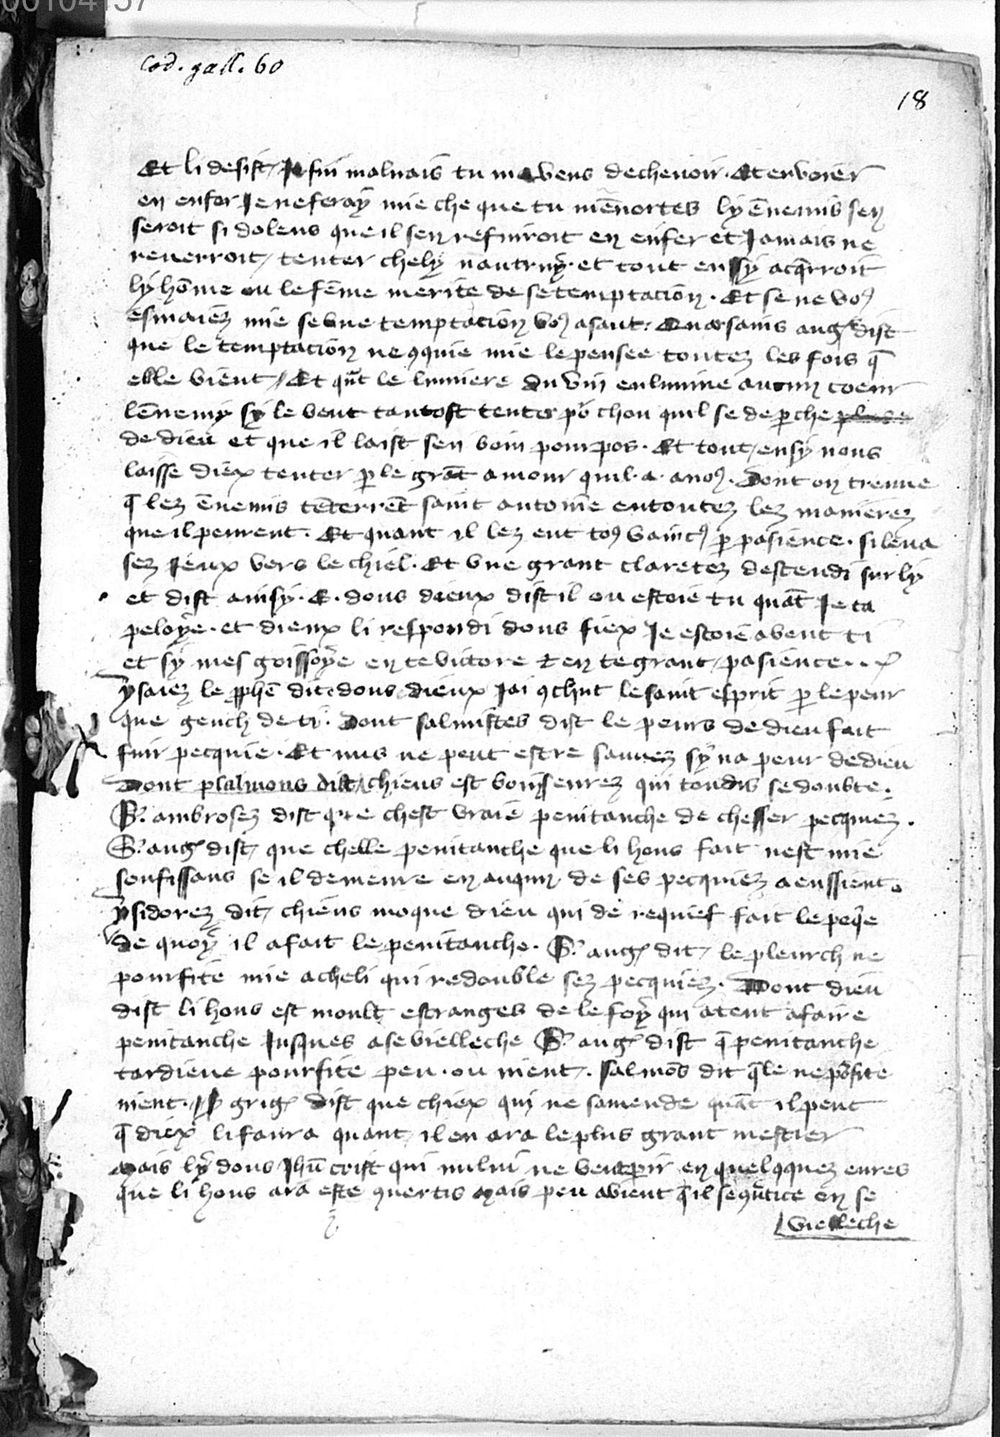 00104157
Cod. gall. 60
18
Et li desist / Je sui malvais tu me vens dechevoir. Et envoier
en enfer Je ne feray mie che que tu m'ēnortes ly ēnemis sen
seroit si dolens que il sen refuiroit en enfer et Jamais ne
revenroit / tenter chely nautruy. et tout ensy acq̄rroit
ly hōme ou le fēme merite de se temptacion. Et se ne vo9
esmaiez mie se une temptacion vo9 asaut. Quar sains aug9 dist
que le temptacion ne 9quie mie le pensee toutez les fois q̄
elle vient / Et qn̄t le lumiere du vin enlumine aucun coeur
lēnemy sy le veut tantost tenter po2 chou quil se deperche
de dieu et que il laist sen boin pourpos. Et tout ensy nous
laisse diex tenter p le grāt amour quil a a no9. Dont on treuve
q̄ lez ēnemis tēterrēt saint antoine en toutez lez manierez
que il peurent. Et quant il lez eut to9 vainc9 p pasience. si leva
sez Jeux vers le chiel. Et une grant claretez descendi sur ly
et dist ainsy. E. dous dieux dist il ou estoie tu quāt Je ta
peloye. et dieux li respondi dous fiex Je estoie avent ti
et sy mesgoissoye en te victore & en te grant pasience..
ysaiez le pphē dit dous dieux Jai 9chut le saint esprit p le peur
que geuch de ti. Dont salmistes dist le peurs de dieu fait
fuir pecquie. Et nus ne peut estre sauvez sy na peur de dieu
Dont psalmons dist / chieus est boin̄seurez qui toudis se doubte.
S. ambrosez dist que chest vraie penitanche de chesser pecquiez.
S. aug9 dist / que chelle penitanche que li hons fait nest mie
souffissans se il demeure en auqun de ses pecquiez a enssient.
ysidorez dit / chieus moque dieu qui de requief fait le peq̄e
de quoy il a fait le penitanche. S. aug9 dit / le pleurch ne
pourfite mie a cheli qui redouble sez pecquiez. Dont dieu
dist li hons est moult estranges de le foy qui atent a faire
penitanche Jusques a se vielleche S. aug9 dist q̄ penitanche
tardieue pourfite peu. ou nient. salmōs dit q̄le ne p̄ofite
nient. grig9 dist que chiex qui ne samende quāt il peut
q̄ diex li faura quant il en ara le plus grant mestier
Mais ly dous Jhū crist qui nului ne veut perir en quelq9quez eures
que li hons ara este 9vertis Mais peu avient q̄il se 9v̄tice en se
vielleche